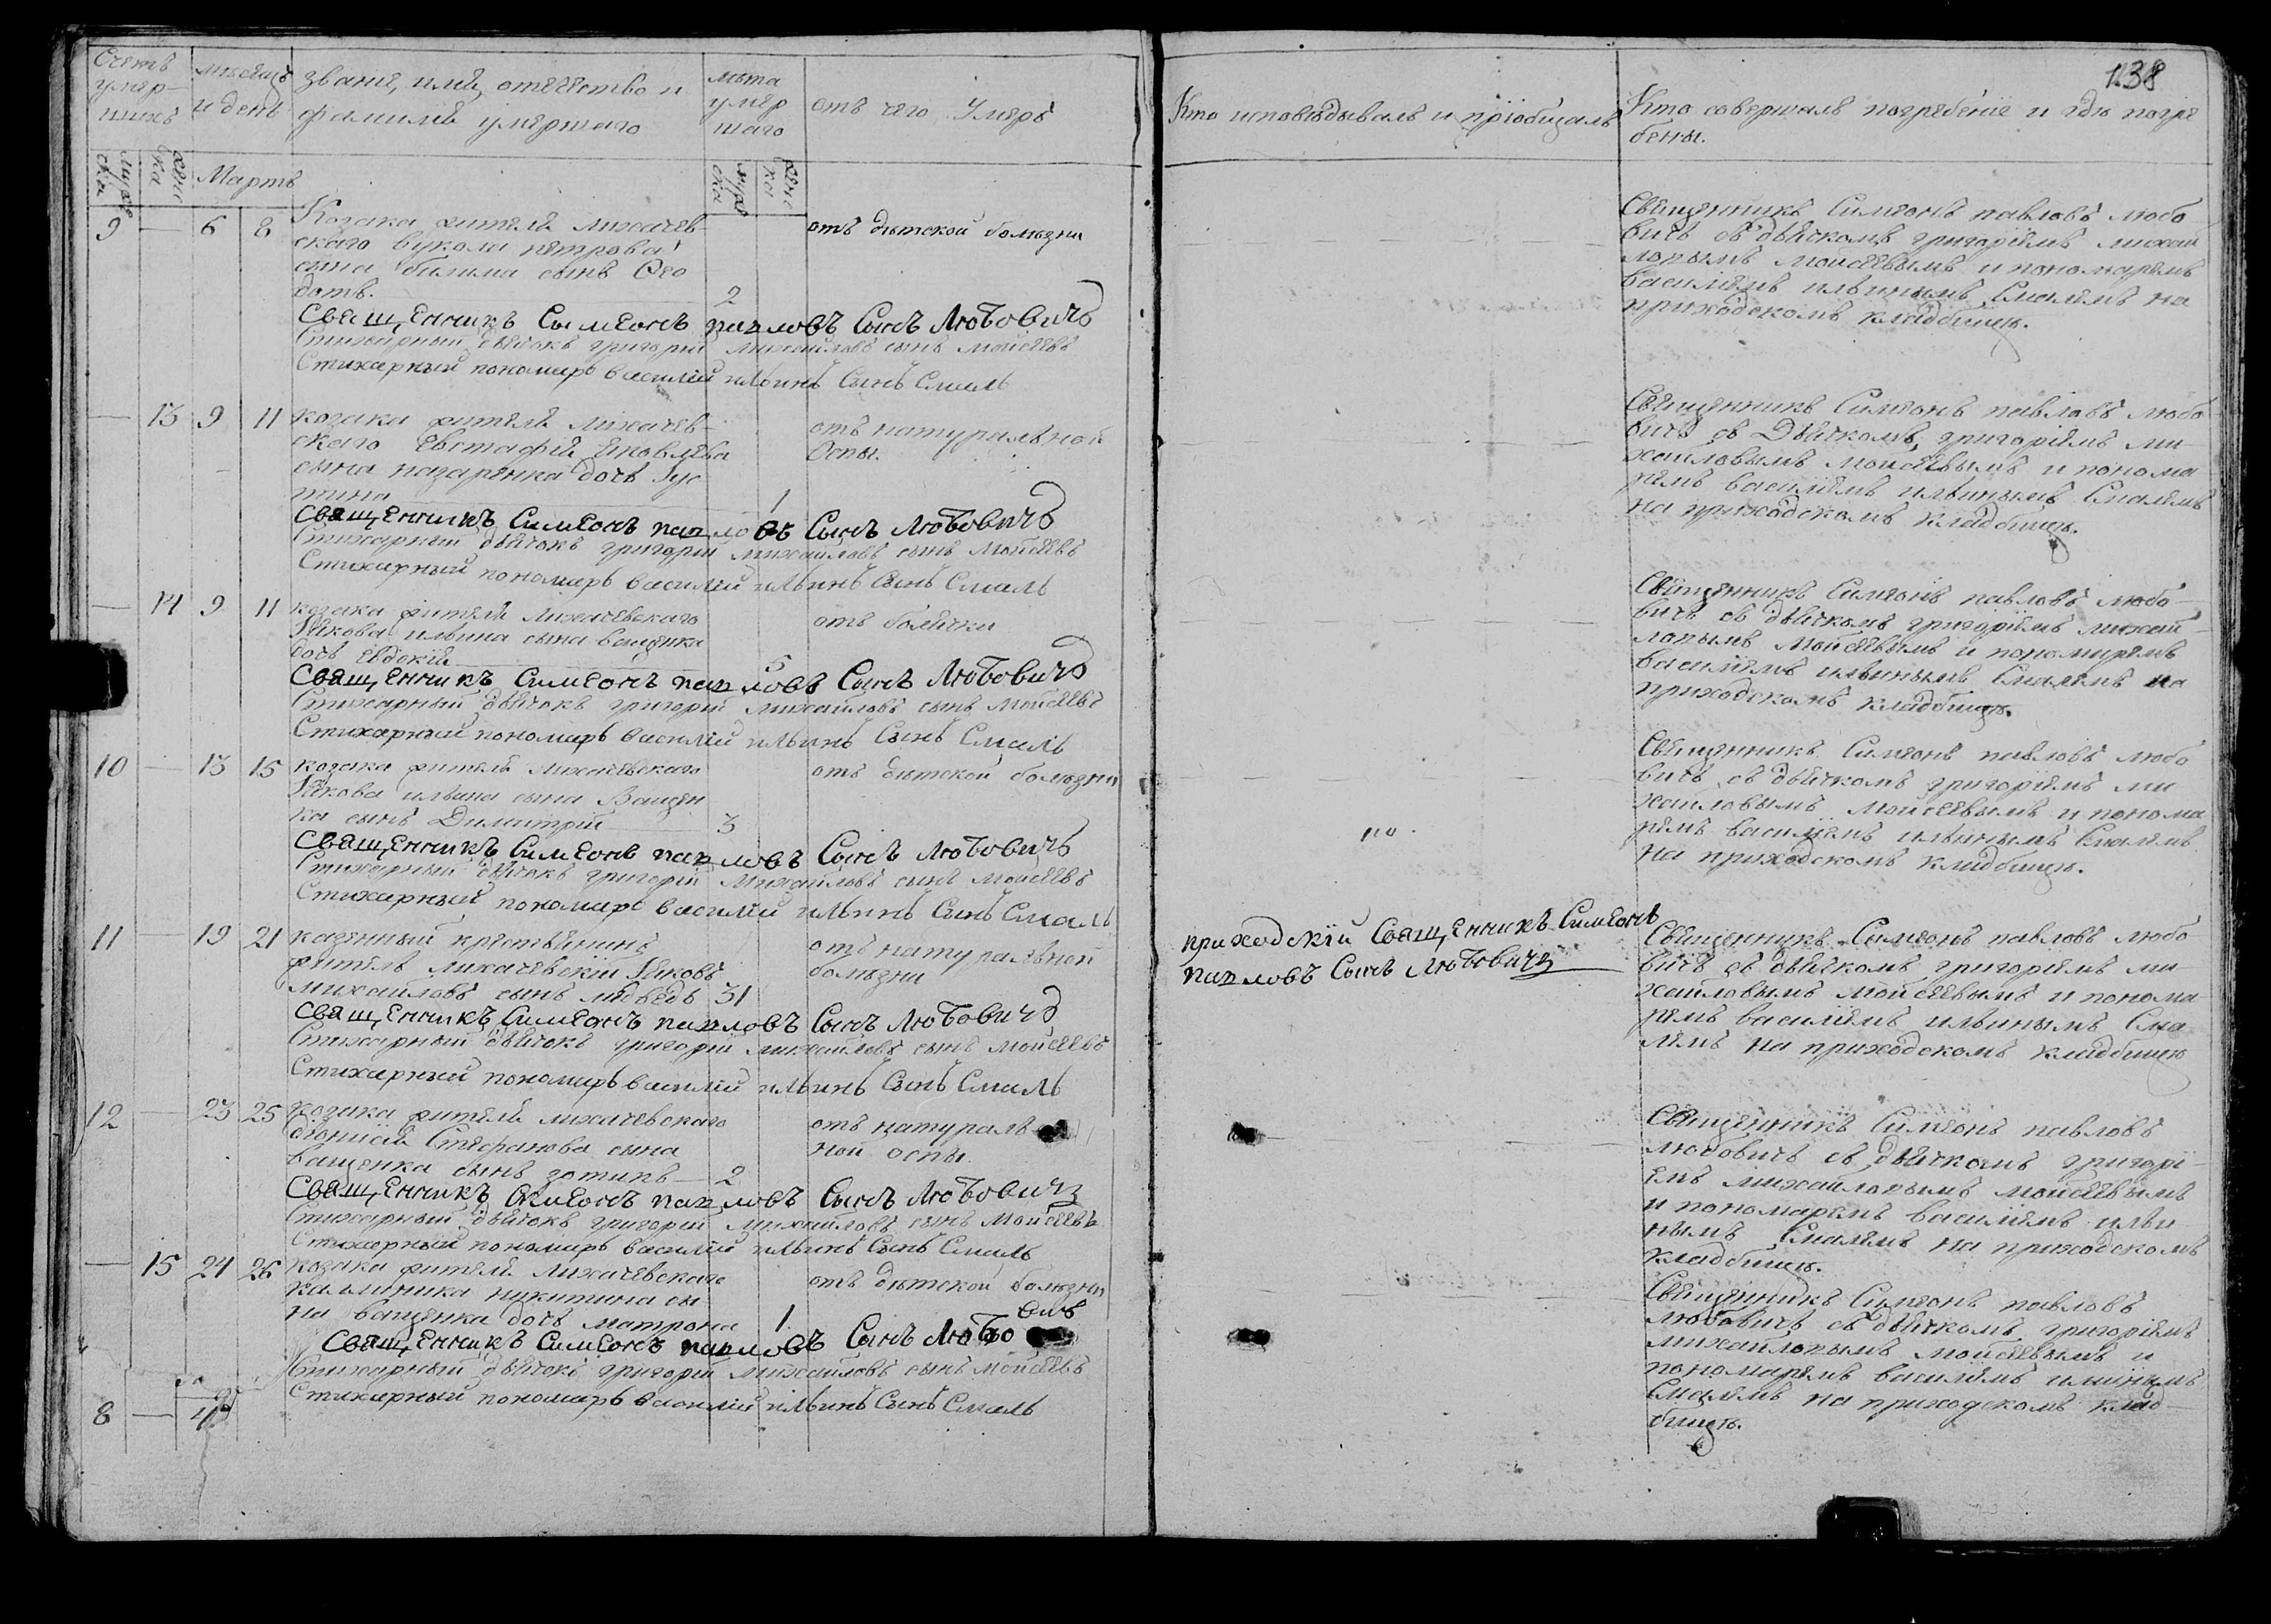 Счетъ умер- шихъ
мѣсяцъ и день
званіе, имя, отечество и
фамилія умершаго
лѣта умер шаго
отъ чего Умеръ
Кто исповѣдывалъ и пріобщалъ
Кто совершалъ погребеніе и гдѣ погре
бены.
138
Мартъ
9 — 6 8 Козака жителя лихачев-
скаго вукола петрова
сына сынъ Ѳео
дотъ. 2
отъ дѣтской болѣзни
Священникъ Симеонъ павловъ любо
вичъ съ дьячкомъ григоріемъ михай
ловымъ моисеевымъ и пономаремъ
василіемъ ильинымъ Смалемъ на
приходскомъ кладбищѣ.
Священникъ Симеонъ павловъ Сынъ Любовичъ
Стихарный дьячокъ григорій михайловъ сынъ моисеевъ
Стихарный пономарь василий ильинъ Сынъ Смаль
— 13 9 11 козака жителя лихачев-
скаго Евстафія яковлева
сына назаренка дочь Іус
тина 1
отъ натуральной
Оспы.
Священникъ Симеонъ павловъ любо
вичъ съ Дьячкомъ григоріемъ ми-
хайловымъ моисеевымъ и понома
ремъ василіемъ ильинымъ Смалемъ
на приходскомъ кладбищѣ.
Священникъ Симеонъ павловъ Сынъ Любовичъ
Стихарный дьячокъ григорій михайловъ сынъ моисеевъ
Стихарный пономарь василий ильинъ Сынъ Смаль
— 14 9 11 козака жителя лихачевскаго
Якова ильина сына ващенка
дочь Евдокія 5
отъ болячки
Священникъ Симеонъ павловъ любо-
вичъ съ дьячкомъ григоріемъ михай-
ловымъ моисеевымъ и пономаремъ
василіемъ ильинымъ Смалемъ на
приходскомъ кладбищѣ.
Священникъ Симеонъ павловъ Сынъ Любовичъ
Стихарный дьячокъ григорій михайловъ сынъ моисеевъ
Стихарный пономарь василий ильинъ Сынъ Смаль
10 — 13 15 козака жителя лихачевскаго
Якова ильина сына Ващен
ка сынъ Димитрій 3
отъ дѣтской болѣзни
Священникъ Симеонъ павловъ любо
вичъ съ дьячкомъ григоріемъ ми
хайловымъ моисеевымъ и понома
ремъ василіемъ ильинымъ Смалемъ
на приходскомъ кладбищѣ.
Священникъ Симеонъ павловъ Сынъ Любовичъ
Стихарный дьячокъ григорій михайловъ сынъ моисеевъ
Стихарный пономарь василий ильинъ Сынъ Смаль
11 — 19 21 казенный крестьянинъ
житель лихачевскій Яковъ
михайловъ сынъ медведь 31
отъ натуральной
болѣзни
приходскій Священникъ Симеонъ
павловъ Сынъ Любовичъ
Священникъ Симеонъ павловъ любо
вичъ съ дьячкомъ григоріемъ ми-
хайловымъ моисеевымъ и понома
ремъ василіемъ ильинымъ Сма
лемъ на приходскомъ кладбищѣ
Священникъ Симеонъ павловъ Сынъ Любовичъ
Стихарный дьячокъ григорій михайловъ сынъ моисеевъ
Стихарный пономарь василий ильинъ Сынъ Смаль
12 — 23 25 козака жителя лихачевскаго
діонисія Стефанова сына
ващенка сынъ зотикъ 2
отъ натураль
ной оспы.
Священникъ Симеонъ павловъ
любовичъ съ дьячкомъ григорі-
емъ михайловымъ моисеевымъ
и пономаремъ василіемъ ильи
нымъ Смалемъ на приходскомъ
кладбищѣ.
Священникъ Симеонъ павловъ Сынъ Любовичъ
Стихарный дьячокъ григорій михайловъ сынъ моисеевъ
Стихарный пономарь василий ильинъ Сынъ Смаль
— 15 24 26 козака жителя лихачевскаго
каллиника никитина сы-
на ващенка дочь матрона 1
отъ дѣтской болѣзни
Священникъ Симеонъ павловъ
любовичъ съ дьячкомъ григоріемъ
михайловымъ моисеевымъ и
пономаремъ василіемъ ильинымъ
Смалемъ на приходскомъ клад-
бищѣ.
Священникъ Симеонъ павловъ Сынъ Любо вичъ
Стихарный дьячокъ григорій михайловъ сынъ моисеевъ
Стихарный пономарь василий ильинъ Сынъ Смаль
8 —